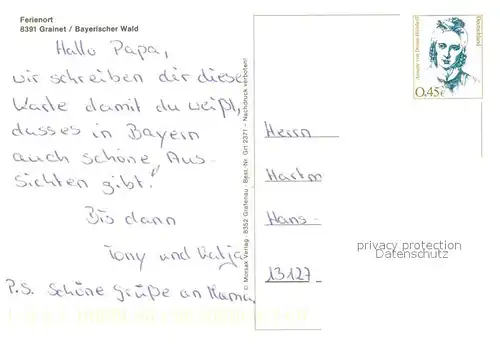 Ferienort
8391 Grainet / Bayerischer Wald
Hallo Papa,
wir schreiben dir diese
Karte damit du weißt,
dasses in Bayern
auch schöne Aus-
sichten gibt!
Bis dann
Tony und Katja
P.S. Schöne Grüße an Mama.
© Morsak Verlag · 8352 Grafenau · Best.-Nr. Grt 2371 - Nachdruck verboten!
Annette von Droste-Hülshoff
Deutschland
0,45€
Herrn
Hartm
Hans-
13127
privacy protection
Datenschutz